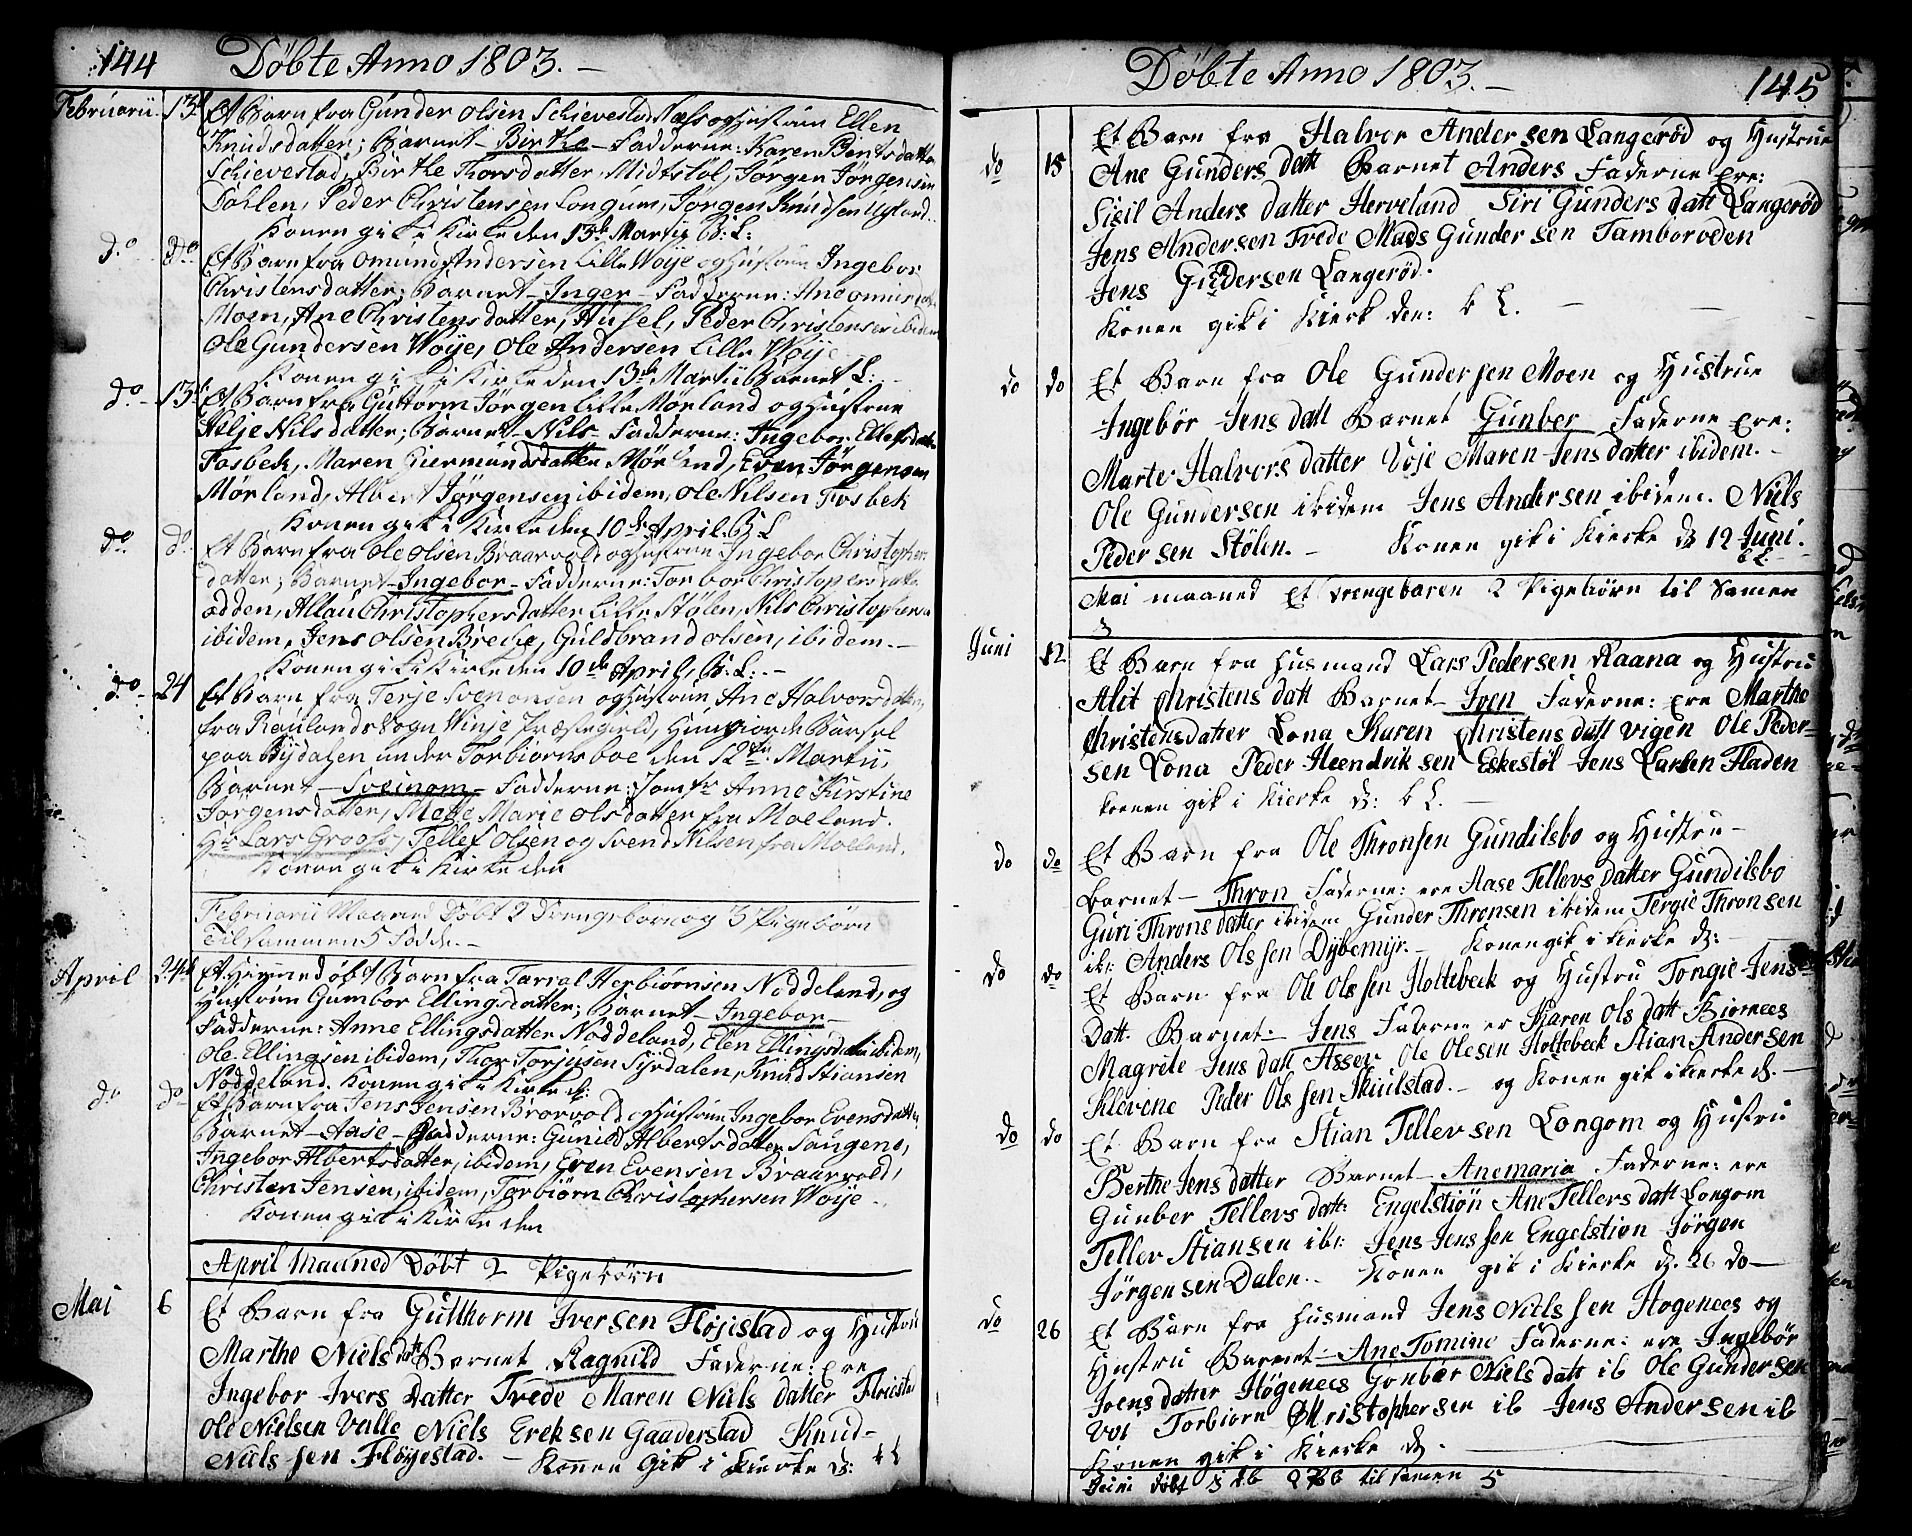 144 Døbte Anno 1803.
Februarii 13 Et Barn fra Gunder Olsen Schievestad Næs og Hustrue Ellen
Knudsdatter; Barnet - Birthe - Fadderne: Karen Bentsdatter
Schievestad, Birthe Thorsdatter Midtstøl, Jørgen Jørgensen
Dohlen, Peder Christensen Longum, Jørgen Knudsen Ugland.
Konen gik i Kirke den 13de Martii B: L:
do do Et Barn fra Omund Andersen Lille Woije og Hustrue Ingebor
Christensdatter; Barnet - Inger - Fadderne: Ane
Moen, Ane Christensdatter, Husel, Peder Christensen ibidem
Ole Gundersen Woije, Ole Andersen Lille Woije
Konen gik i Kirke den 13de Martii Barnet L:
do 13 Et Barn fra Guttorm Jørgen Lille Mørland og Hustrue
Helje Nilsdatter; Barnet - Nils - Fadderne: Ingebor Ellefsdatter
Fosbek, Maren Giermundsdatter Mørland, Even Jørgensen
Mørland, Albert Jørgensen ibidem, Ole Nilsen Fosbek
Konen gik i Kirke den 10de April. B L
do do Et Barn fra Ole Olsen Braarvold og Hustrue Ingebor Christopher
datter; Barnet - Ingebor - Fadderne: Torbor Christophersdatter
odden, Allau Christophersdatter Lille Stølen, Nils Christophersen
ibidem, Jens Olsen Brecke, Guldbrand Olsen, ibidem.
Konen gik i Kirke den 10de April, B. L:
do 24 Et Barn fra Terje Svenonsen og Hustrue Ane Halvorsdatter,
fra Raulands Sogn Winje Præstegield, Hun giorde Barsel
paa Sydalen under Torbiørnsboe den 12te Martii,
Barnet - Sveinom - Fadderne: Jomfr Anne Kirstine
Jørgensdatter, Mette Marie Olsdatter fra Moeland.
Hr Lars Grooss, Tellef Olsen og Svend Nilsen, fra Moeland.
Konen gik i Kirke den
Februarii Maaned Døbt 2 Drengebørn og 3 Pigebørn
Tilsammen 5 Fødde.
April 24 Et Hiemmedøbt Barn fra Tarral Herbiørnsen Noddeland, og
Hustrue Gumbor Ellingsdatter; Barnet - Ingebor -
Fadderne: Anne Ellingsdatter Noddeland, Elen Ellingsdatter ibidem,
Ole Ellingsen ibidem, Thor Torjusen Syrdalen, Knud Stiansen
Noddeland. Konen gik i Kirke d:
do do Et Barn fra Jens Jensen Brorvold og Hustrue Ingebor Evensdatter,
Barnet - Aase - Fadderne: Gunild Albertsdatter Saugene,
Ingebor Albertsdatter, ibidem, Even Evensen Braarvold,
Christen Jensen, ibidem, Torbiørn Christophersen Woije.
Konen gik i Kirke den
April Maaned Døbt 2 Pigebørn
Mai 6 Et Barn fra Gutthorm Iversen Fløjistad og Hustru
Marthe Niels datt Barnet Ragnild Faderne: ere
Ingebor Ivers Datter Trede Maren Niels datter Fløiestad
Ole Nielsen Valle Niels Ereksen Gaaderstad Knud
Niels sen Fløyestad. - Konen Gik i Kierke d: b L
Døbte Anno 1803. 145
do 15 Et Barn fra Halvor Andersen Langerød og Hustrue
Ane Gunders datt Barnet Anders Faderne Ere:
Sisil Anders datter Herveland Siri Gunders datt Langerød
Jens Andersen Trede Mads Gundersen Tamboroden
Jens Gudersen Langerød.
Konen gik i Kierk den: b L.
do do Et Barn fra Ole Gundersen Moen og Hustrue
Ingebør Jens datt Barnet Gunber Faderne Ere:
Marte Halvors datter Voje Maren Jens datter ibidem.
Ole Gundersen ibidem Jens Andersen ibidem. Niels
Pedersen Stølen. - Konen gik i Kierke d 12 Juni.
b L.
Mai maaned Et Drengebaren 2 Pigebørn til Samen
3
Juni 12 Et Barn fra Husmand Lars Pedersen Raana og Hustru
Alit Christens datt Barnet Iven Faderne: ere Marthe
Christensdatter Lona Karen Christens datt vigen Ole Peder
sen Lona Peder Heendriksen Eskestøl Jens Larsen Fladen
konen gik i Kierke d: b L.
do do Et Barn fra Ole Thronsen Gundilsbo og Hustru -
Barnet - Thron Faderne: ere Aase Tellevs datter Gundilsbo
Guri Throns datter ibidem Gunder Thronsen ibidem Tergie Thronsen
ib: Anders Olssen Dybemyr. - Konen gik i Kierke d:
do do Et Barn fra Ole Olssen Holtebeck og Hustru Tongie Jens
Datt. Barnet - Jens Faderne er Karen Ols datt Biornees
Magrete Jens datt Assev Ole Olesen Holtebeck Stian Andersen
Klevene Peder Olssen Skiulstad. - og Konen gik i Kierke d. -
do do Et Barn fra Stian Tellevsen Longom og Hustru
Berthe Jens datter Barnet - Anemaria Faderne: ere
Gunber Tellevs datt. Engelstiøn Ane Tellevs datt Longom
Tellev Stiansen ib: Jens Jenssen Engelstion Jørgen
Jørgensen Dalen. - Konen gik i Kierke d. 26 do -
do 26 Et Barn fra Husmand Jens Nielssen Hogenees og
Hustru Barnet - Ane Tomine Faderne: ere Ingebør
Joens datter Høgenees Gonbær Niels datt ib Ole Gundersen
Voi Torbiørn Christophersen ib Jens Andersen ib
Konen gik i Kierke d.
Juni døbt 3 db 2 PB til samen 5